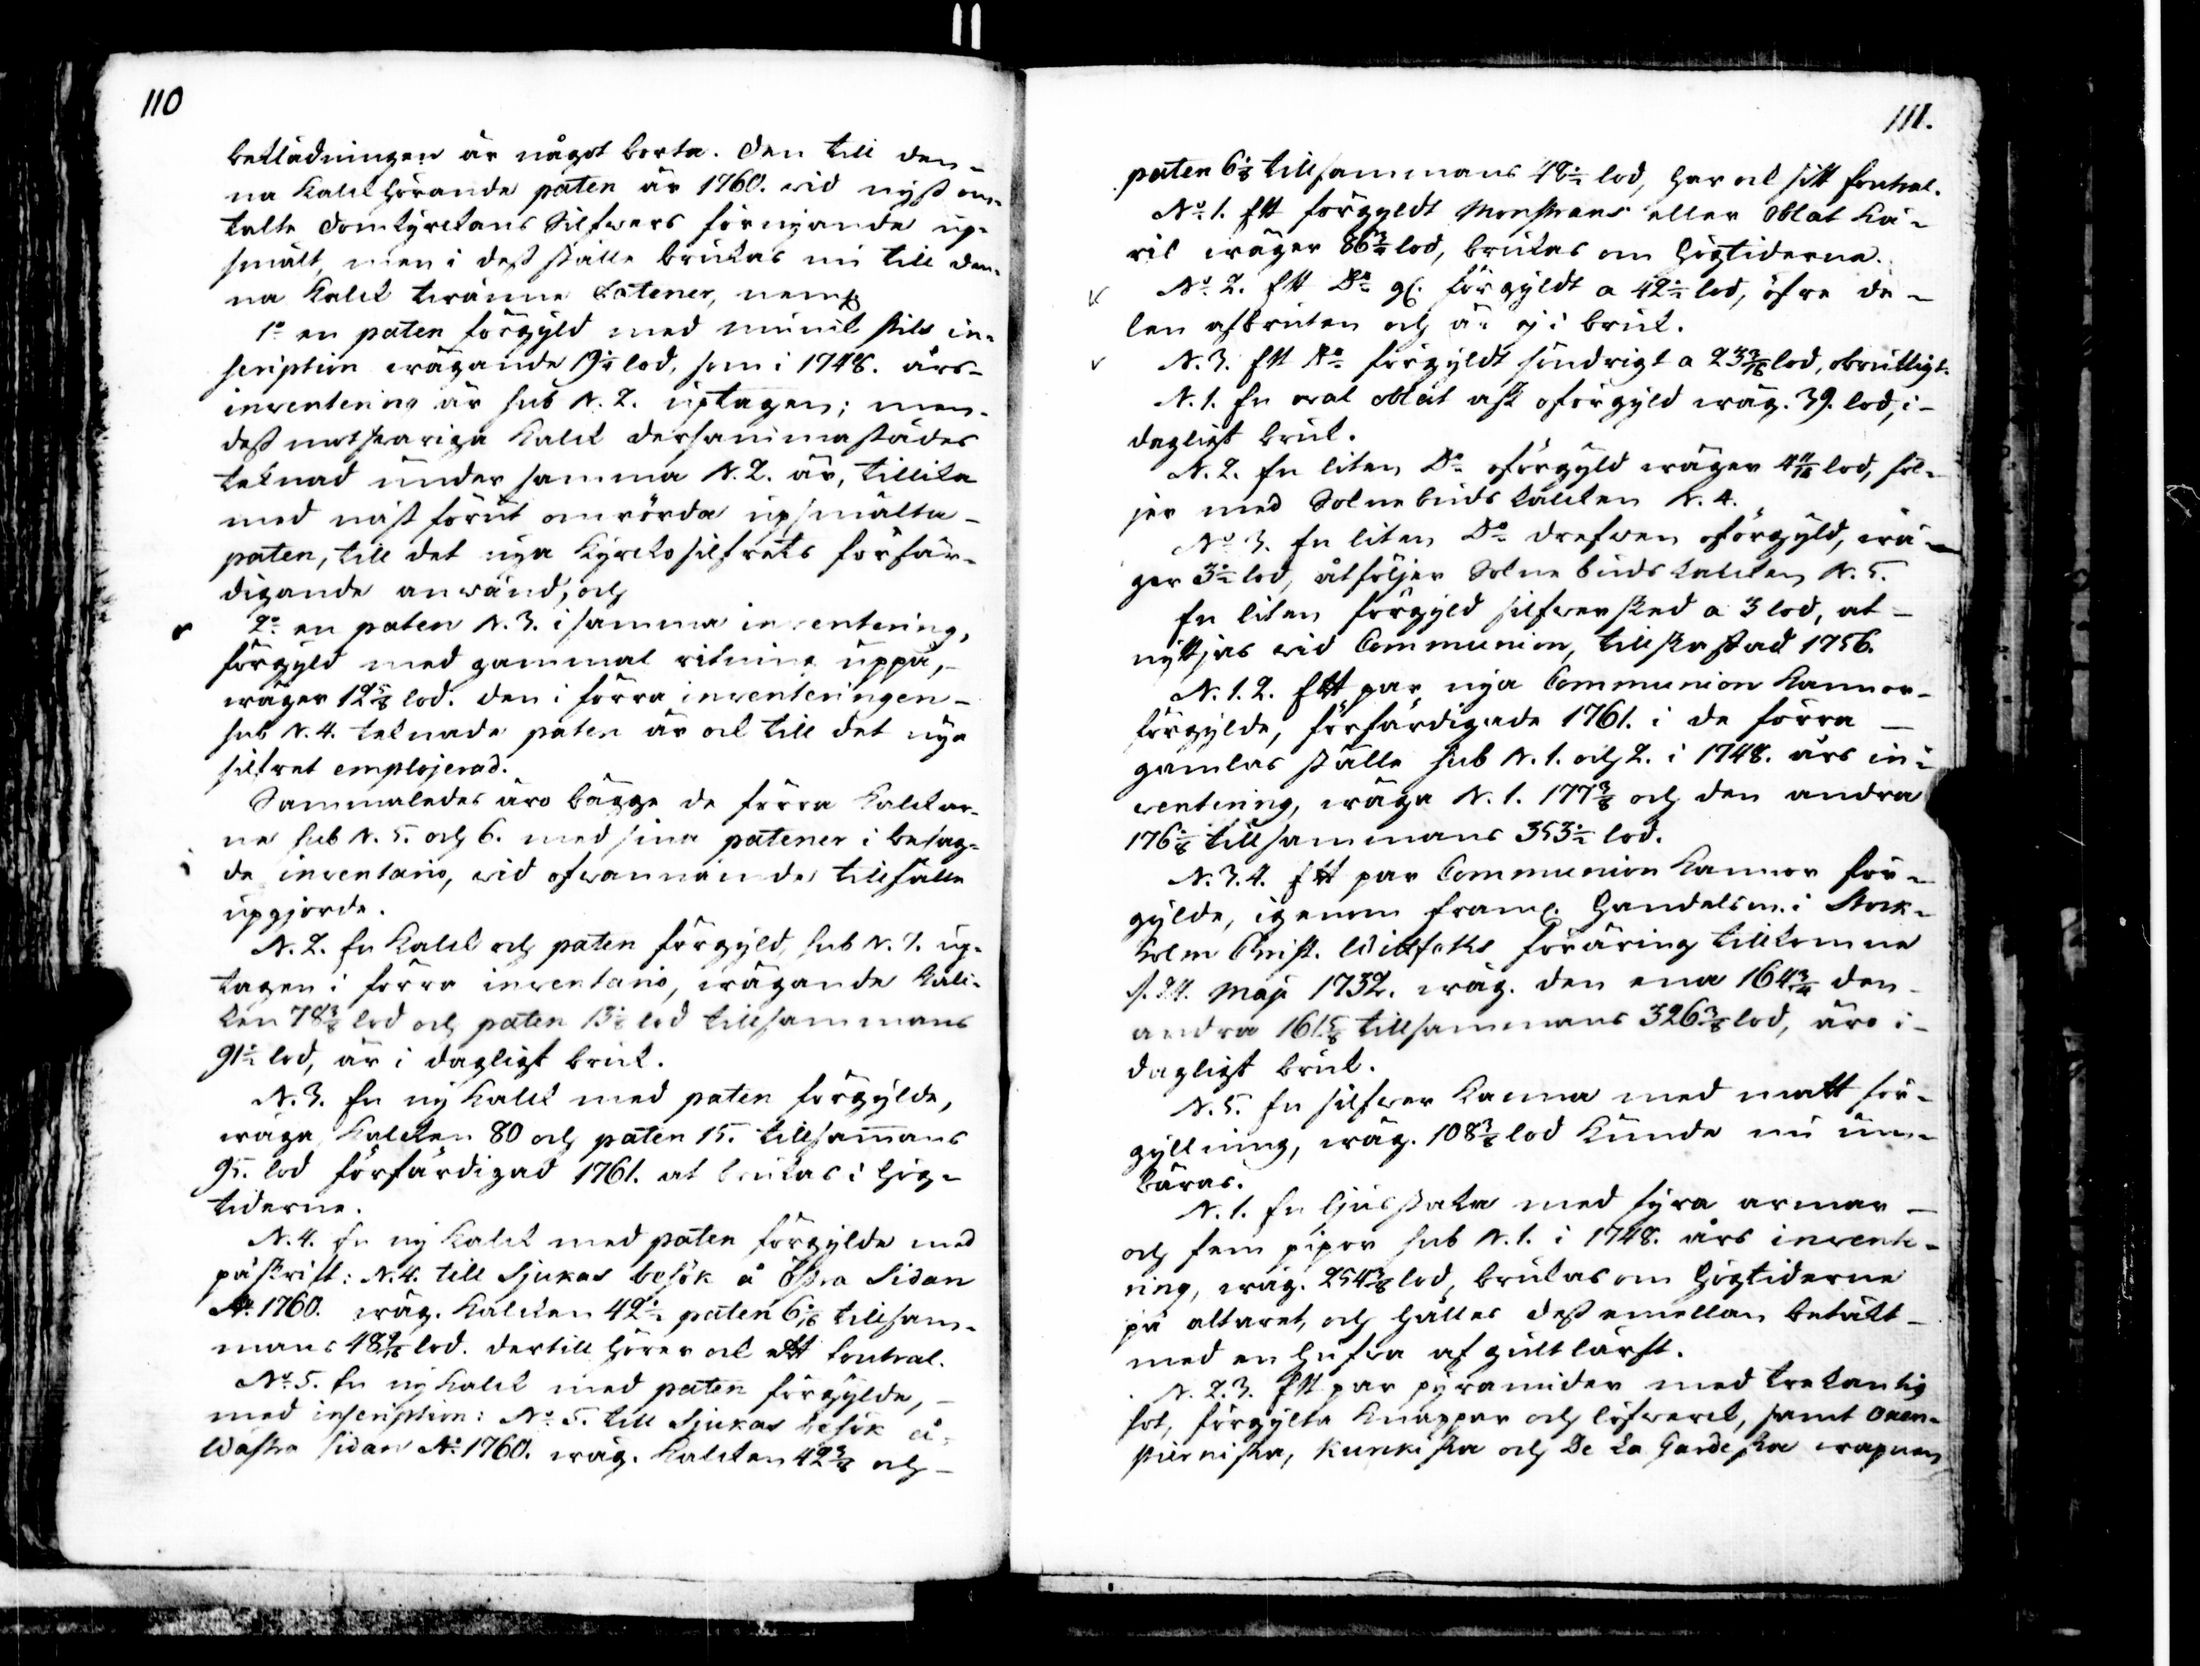 110
beklädningen är något borta. Den till den-
na Kalck hörande paten är 1760. wid nyß om-
talte Domkyrckans Silfwers förnyande up-
smält, men i deß ställe brukas nu till den-
na Kalck twänne Patener, neml.
1:o en paten förgyld med munck stils in-
scription wägande 19 1/4 lod, som i 1748. års-
inventering är sub N. 2. uptagen; men-
deß motswariga Kalck dersammastädes
teknad under samma N. 2. är, tillika
med näst förut omrörda upsmälta-
paten, till det nya Kyrckosilfrets förfär-
digande använd; och
2:o en paten N. 3. i samma inventering,
förgyld med gammal ritning uppå,-
wäger 12 5/8 lod. den i förra inventeringen-
sub N. 4. teknade paten är ock till det nya
silfret emplojerad.
Sammaledes äro bägge de förra Kalckar-
ne sub N. 5. och 6. med sina patener i besag-
de inventario, wid ofwannämnde tillfälle
upgjorde.
N. 2. En Kalck och paten förgyld, sub N. 7. up-
tagen i förra inventario, wägande Kalc-
ken 78 3/8 lod och paten 13 1/8 lod tillsammans
91 1/2 lod, är i dagligt bruk.
N. 3. En ny Kalck med paten förgylde,
wäga Kalcken 80 och paten 15. tillsam̅ans
95. lod förfärdigad 1761. at brukas i Hög-
tiderne.
N. 4. En ny Kalck med paten förgylde med
påskrift: N. 4. till Sjukas besök å Östra Sidan
A:o 1760. wäg. Kalcken 42 1/2 paten 6 1/16 tillsam-
mans 48 9/16 lod. dertill hörer ock ett foutral.
N:o 5. En ny Kalck med paten förgylde,-
med inscription: N:o 5. till Sjukas besök å-
Wästra sidan A:o 1760. wäg. Kalcken 42 3/8 och-
111.
paten 6 1/8 tillsammans 48 1/2 lod, har ock sitt foutral.
N:o 1. Ett förgyldt Monstrans eller Oblat Kä-
ril wäger 86 3/4 lod, brukas om Högtiderne.
N:o 2. Ett D:o förgyldt a 42 1/2 lod, öfre de-
len afbruten och är ej i bruk.
N. 3. Ett D:o förgyldt söndrigt a 23 3/16 lod, obrukligt.
N. 1. En oval oblat ask oförgyld wäg. 39. lod, i-
dagligt bruk.
N. 2. En liten D:o oförgyld wäger 4 11/16 lod, föl-
jer med Sockne buds kalcken N. 4.
N:o 3. En liten D:o drefwen oförgyld, wä-
ger 3 1/2 lod, åtföljer Sockne buds kalcken N. 5.
En liten förgyld silfwer sked a 3 lod, at-
nyttjas wid Communion, tillskaffad 1756.
N. 1. 2. Ett par nya Communion Kannor-
förgylde, förfärdigade 1761. i de förra-
gamlas ställe sub N. 1. och 2. i 1748. års in-
ventering, wäga N. 1. 177 3/8 och den andra
176 1/8 tillsammans 353 1/2 lod.
N. 3. 4. Ett par Communion Kannor för-
gylde, igenom framl. Handelsm. i Stock-
holm Christ. föräring tillkomne
Maji 1732. wäg. den ena 164 3/4 den-
andra 161 5/8 tillsammans 326 3/8 lod, äro i-
dagligt bruk.
N. 5. En silfwer Kanna med matt för-
gyllning, wäg. 108 3/8 lod Kunde nu um-
bäras.
N. 1. En ljusstaka med fyra armar-
och fem pipor sub N. 1. i 1748. års invente-
ring, wäg. 254 3/8 lod, brukas om Högtiderne
på altaret, och hålles deß emellan betäkt-
med en hufwa af gult lärft.
N. 2. 3. Ett par pyramider med trekantig
fot, förgylta Knappar och löfwerck, samt Oxen-
stierniska, Kunkiska och De La Gardiska wapnen